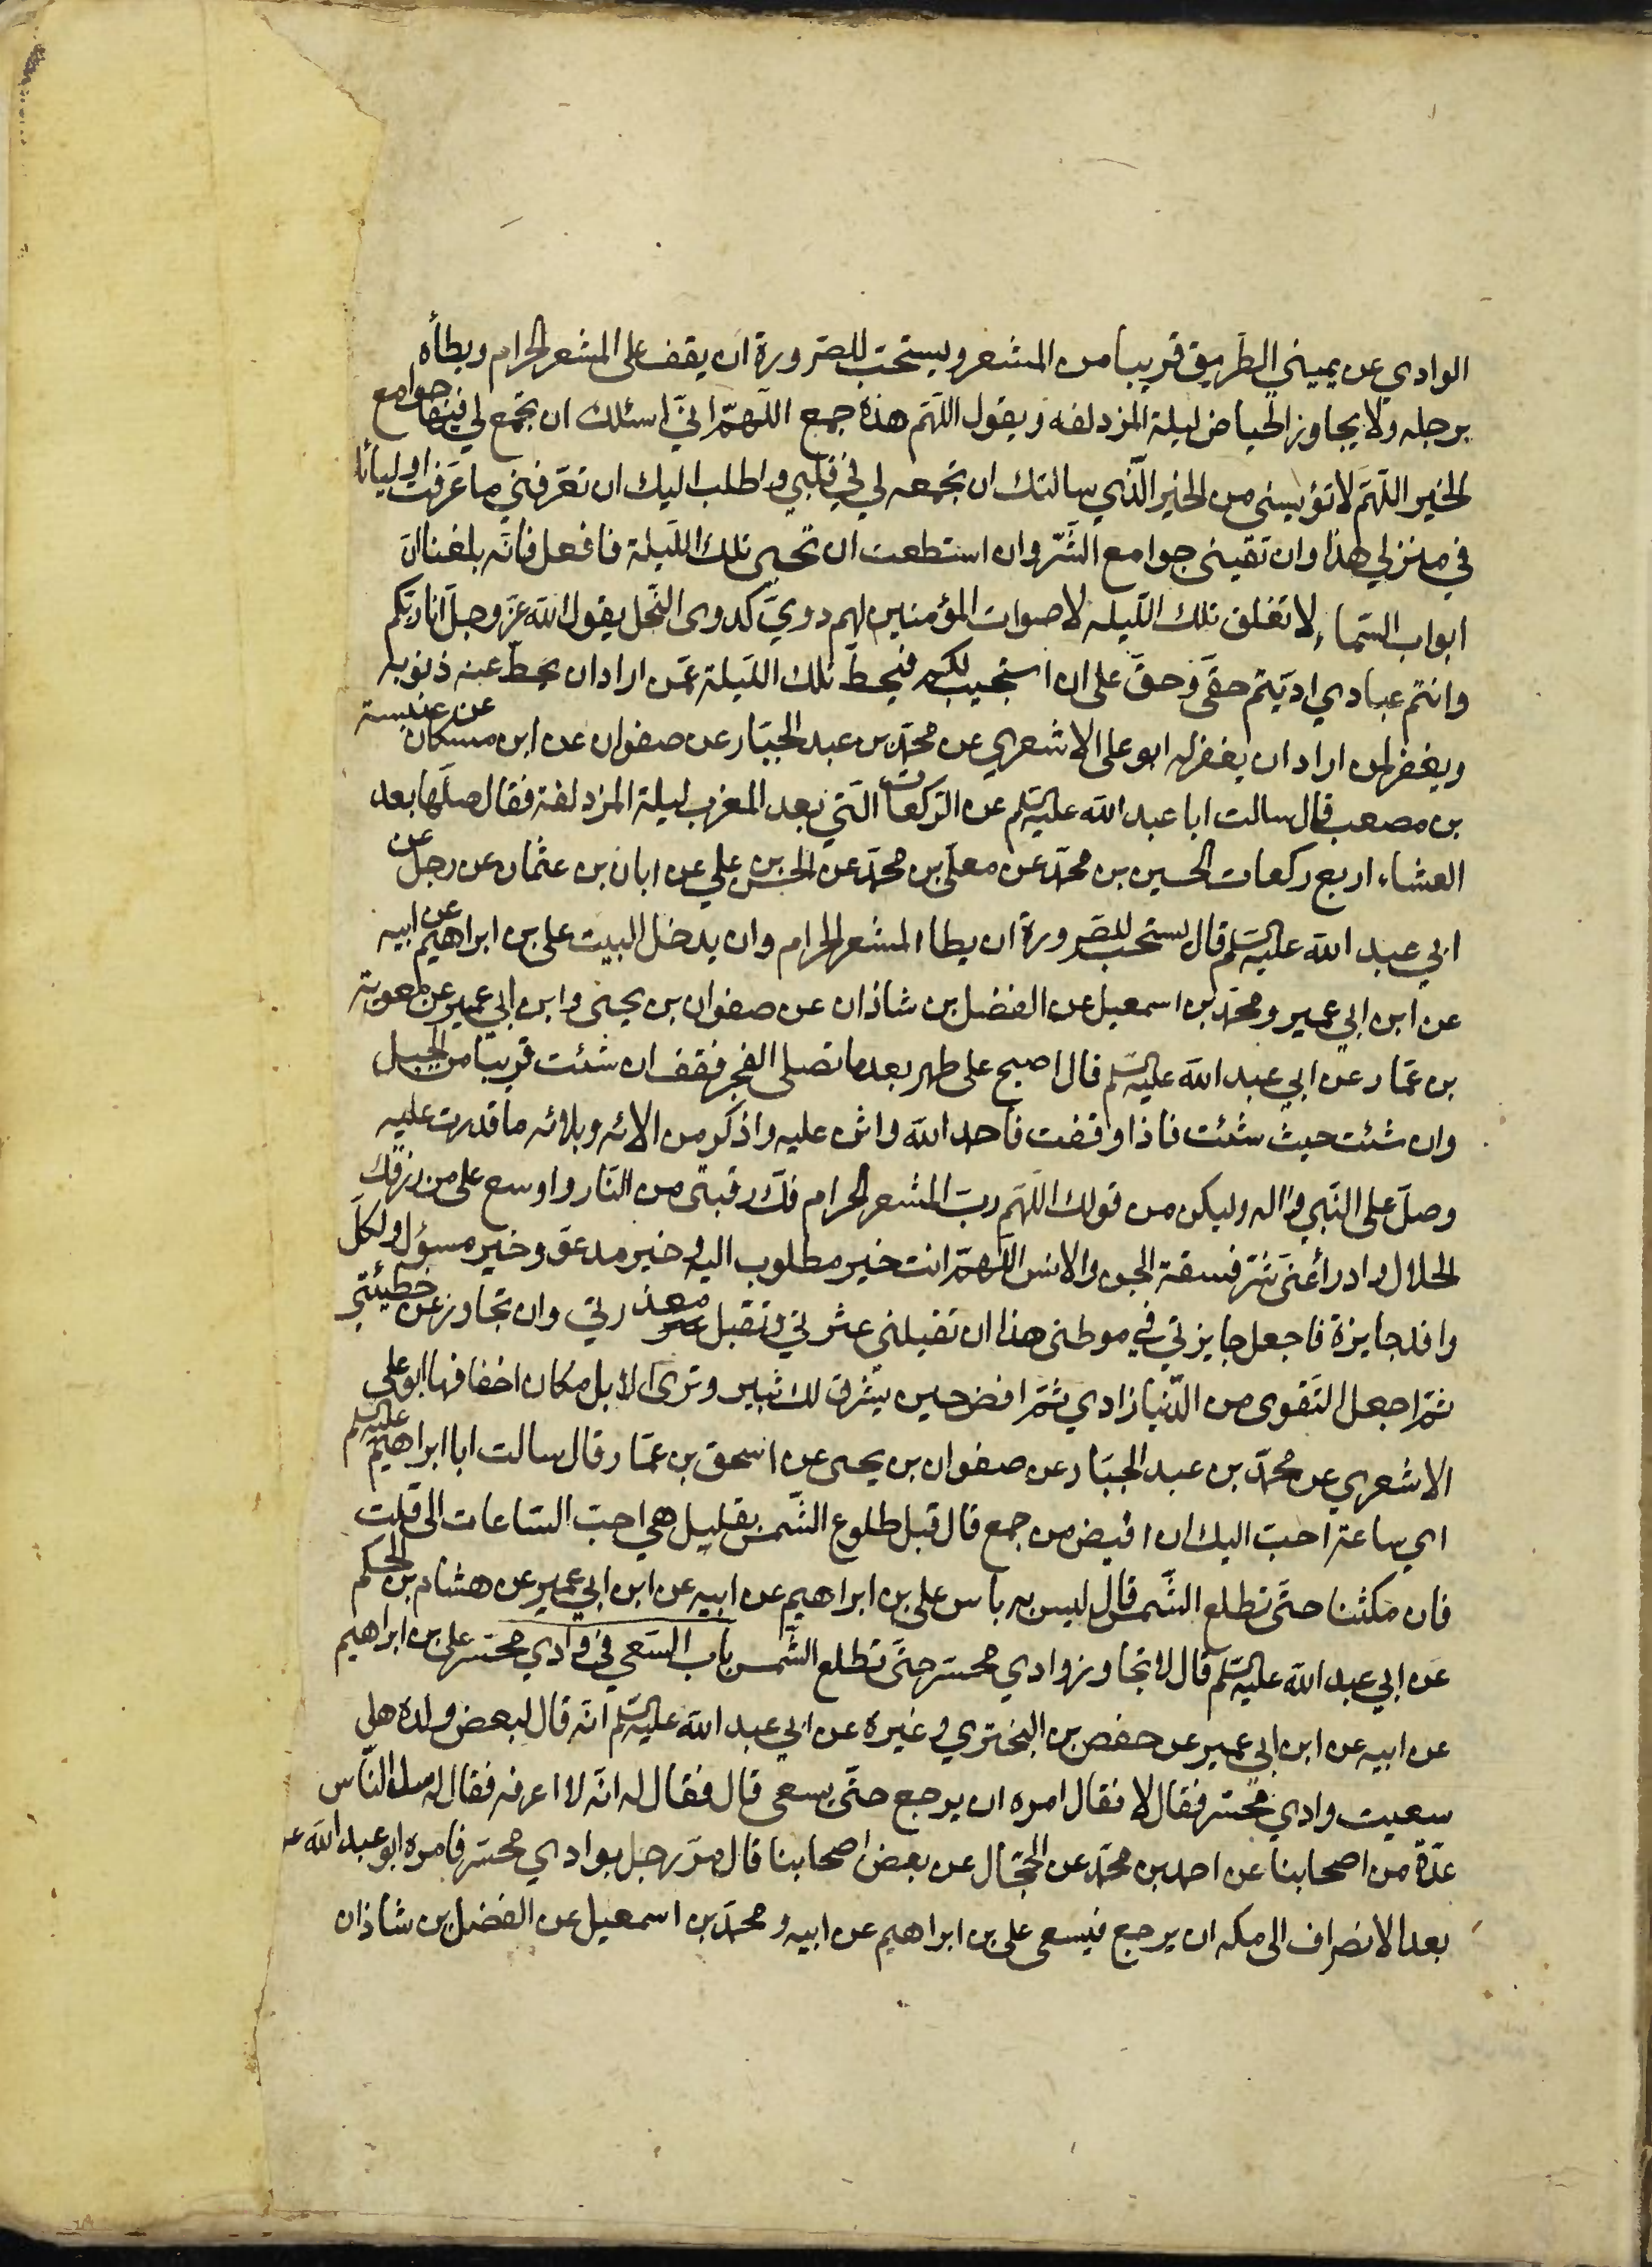 الوادي عن يميني الطريق قريبا من المشعر ويستحب للصرورة ان يقف على المشعر الحرام ويطأه
برجله ولا يجاوز الحياض ليلة المزدلفه ويقول اللهم هذه جمع اللهم اني اسئلك ان تجمع لي فيها جوامع
الخير اللهم لا تؤيسنى من الخير الذي سالتك ان تجمعه لي في قلبي واطلب اليك ان تعرفني ما عرفت اوليائك
في منزلي هذا وان تقينى جوامع الشر وان استطعت ان تحيى تلك الليلة فافعل فانه بلغنا ان
ابواب السماء لا تغلق تلك الليله لاصوات المؤمنين لهم دوي كدوى النحل يقول الله عز وجل انا ربكم
وانتم عبادي اديتم حقى وحق على ان استجيب لكم فيحط تلك الليلة عمن اراد ان يحط عنه ذنوبه
ويغفر لمن اراد ان يغفر له ابو على الاشعري عن محمد بن عبد الجبار عن صفوان عن ابن مسكان عن عنبسة
بن مصعب قال سالت ابا عبد الله عليه السلم عن الركعات التي بعد المغرب ليلة المزدلفة فقال صلها بعد
العشاء اربع ركعات الحسين بن محمد عن معلى بن محمد عن الحسن بن علي عن ابان بن عثمان عن رجل عن
ابي عبد الله عليه السلم قال يستحب للصرورة ان يطا المشعر الحرام وان يدخل البيت على بن ابراهيم عن ابيه
عن ابن ابي عمير ومحمد بن اسمعيل عن الفضل بن شاذان عن صفوان بن يحيى وابن ابي عمير عن معوية
بن عمار عن ابي عبد الله عليه السلم قال اصبح على طهر بعد ما تصلى الفجر فقف ان شئت قريبا من الجبل
وان شئت حيث شئت فاذا وقفت فاحمد الله واثن عليه واذكر من الائه وبلائه ما قدرت عليه
وصل على النبي واله وليكن من قولك اللهم رب المشعر الحرام فك رقبتى من النار واوسع على من رزقك
الحلال وادرأ عنى شر فسقة الجن والانس اللهم انت خير مطلوب اليه وخير مدعو وخير مسؤل ولكل
وافد جايزة فاجعل جايزتي في موطنى هذا ان تقيلنى عثرتي وتقبل معذرتي وان تجاوز عن خطيئتي
ثم اجعل التقوى من الدنيا زادي ثم افض حين يشرق لك ثبير وترى الابل مكان اخفافها ابو على
الاشعري عن محمد بن عبد الجبار عن صفوان بن يحيى عن اسحق بن عمار قال سالت ابا ابراهيم عليه السلم
اي ساعة احب اليك ان افيض من جمع قال قبل طلوع الشمس بقليل هي احب الساعات الى قلت
فان مكثنا حتى تطلع الشمس قال ليس به باس على بن ابراهيم عن ابيه عن ابن ابي عمير عن هشام بن الحكم
عن ابي عبد الله عليه السلم قال لا تجاوز وادي محسر حتى تطلع الشمس باب السعي في وادي محسر على بن ابراهيم
عن ابيه عن ابن ابي عمير عن حفص بن البختري وغيره عن ابي عبد الله عليه السلم انه قال لبعض ولده هل
سعيت وادي محسر فقال لا فقال امره ان يرجع حتى يسعى قال فقال له انه لا اعرفه فقال له سل الناس
عدة من اصحابنا عن احمد بن محمد عن الحجال عن بعض اصحابنا قال مر رجل بوادي محسر فامره ابو عبد الله ع
بعد الانصراف الى مكه ان يرجع فيسعى على بن ابراهيم عن ابيه ومحمد بن اسمعيل عن الفضل بن شاذان